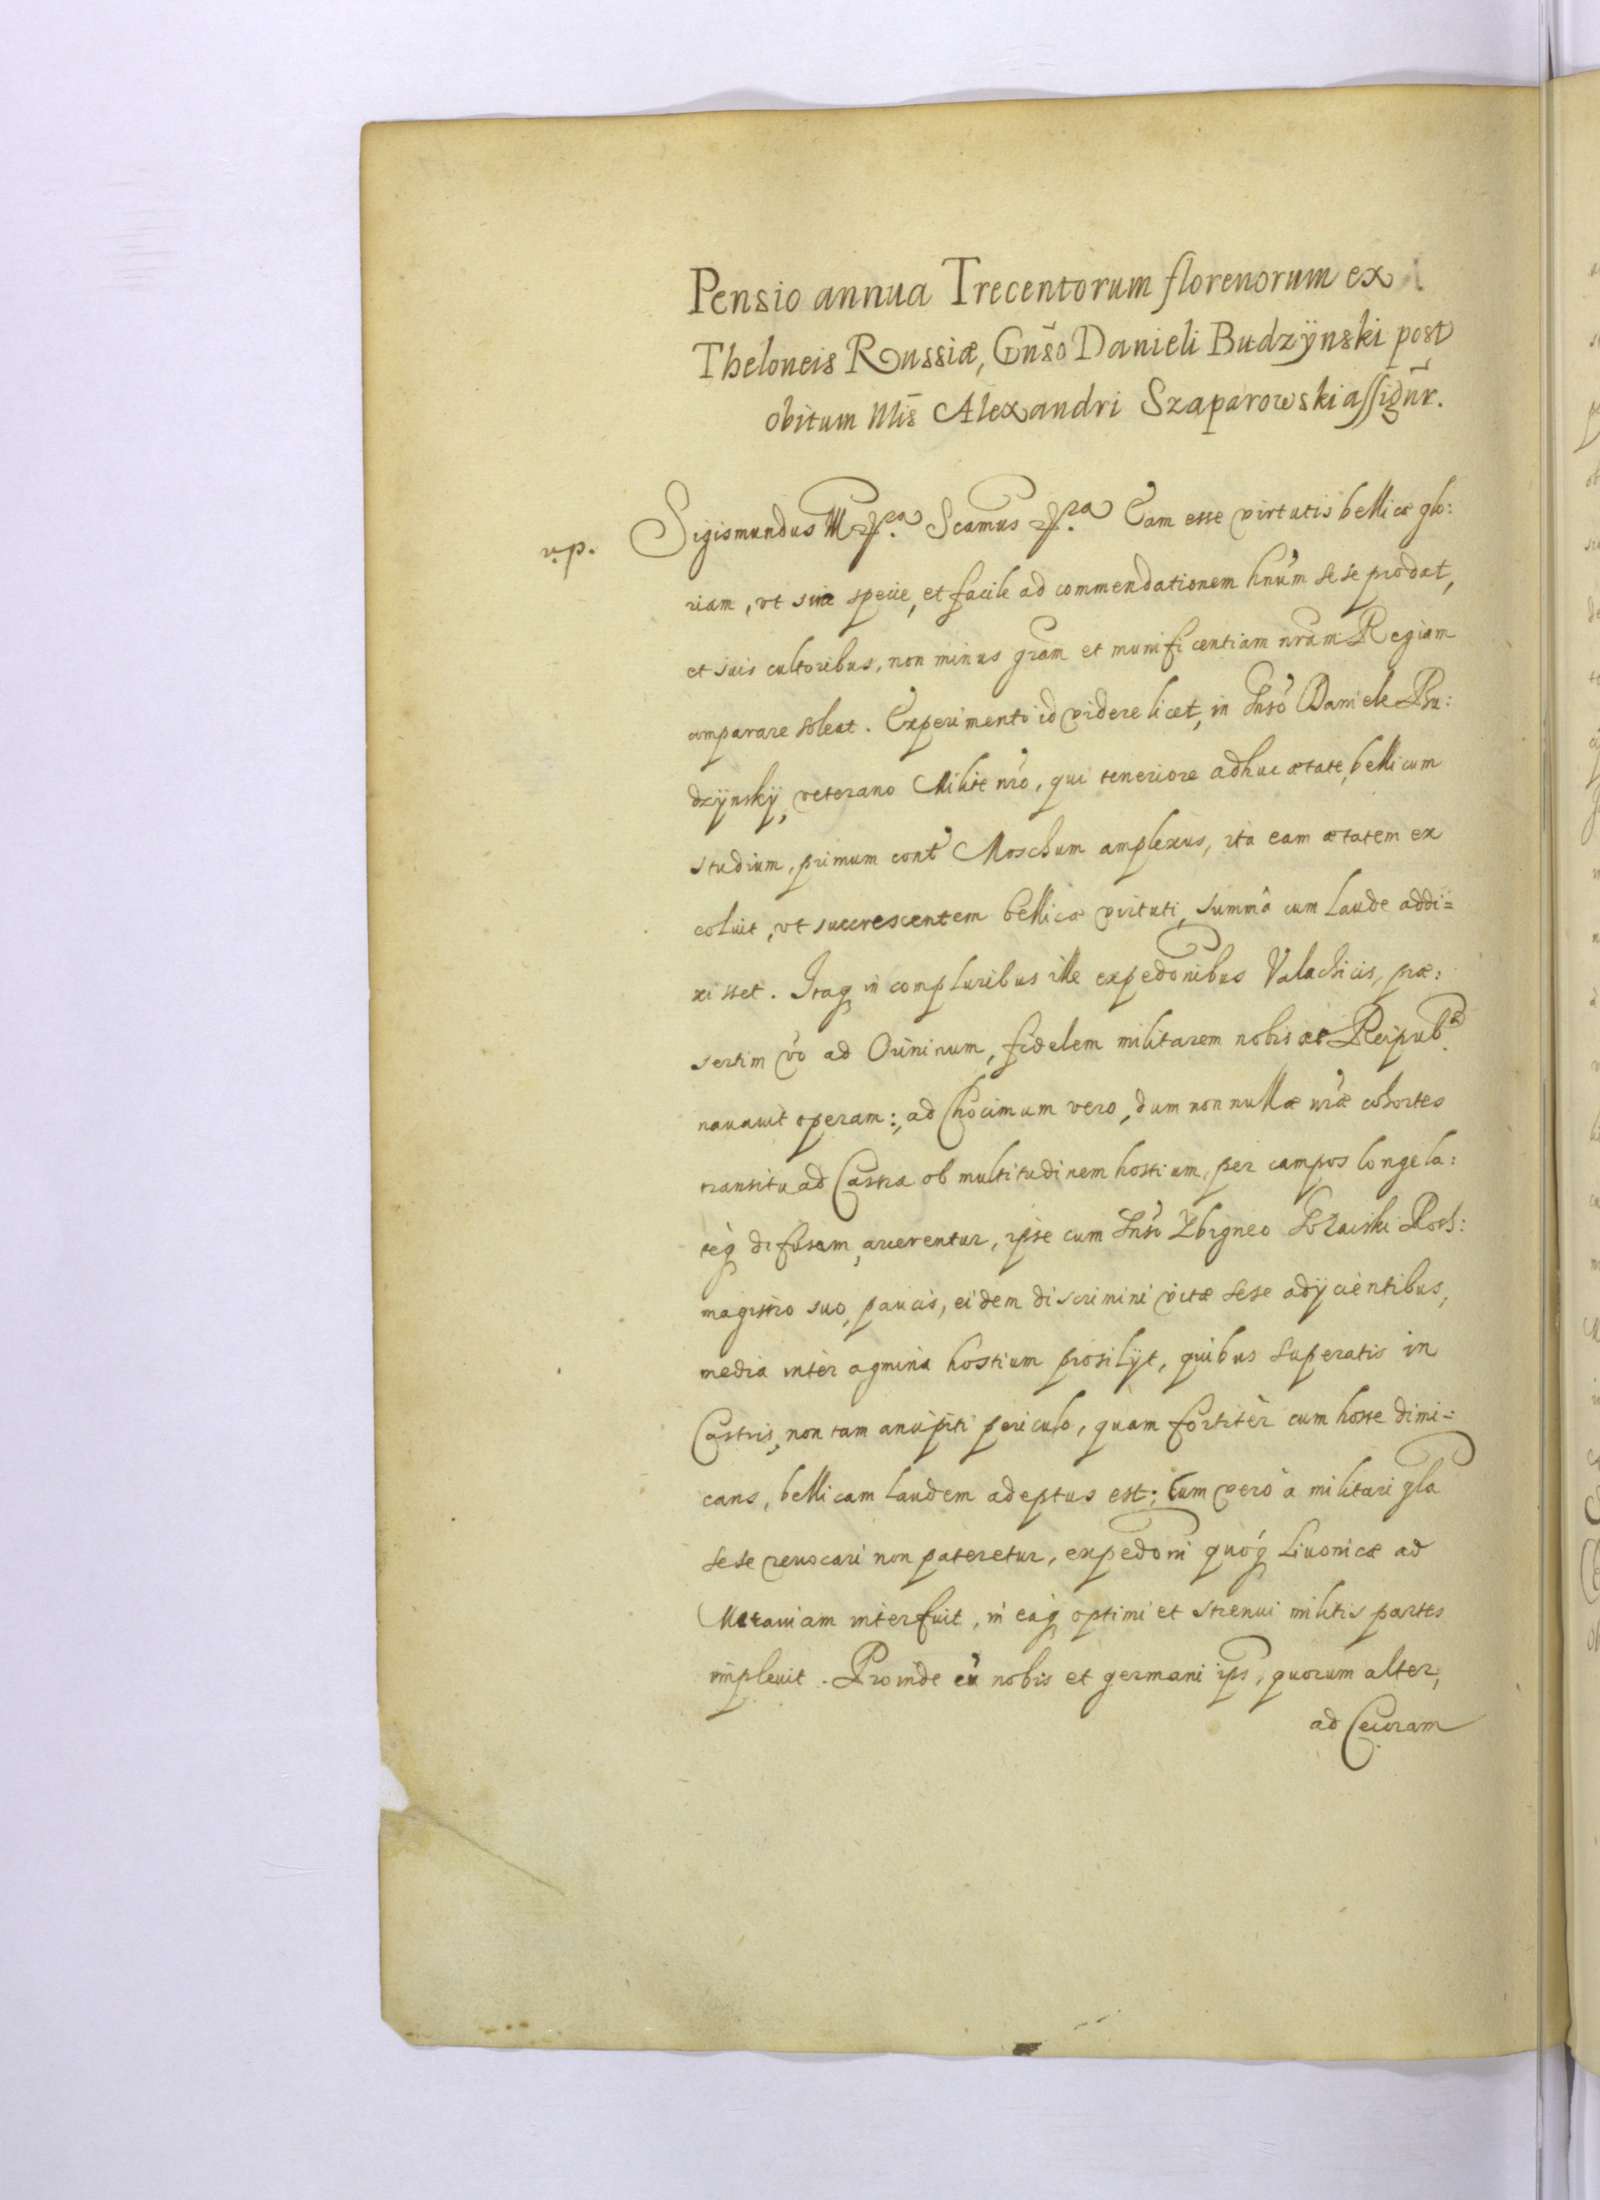 Pensio annua Trecentorum florenorum ex
Theloneis Russiæ, Gnso Danieli Budzÿnski post
obitum Mis Alexandri Szaparowski assignr.
Sigismundus III etc. Scamus etc. Eam esse virtutis bellicæ glo:
v.p.
riam, vt sua specie, et facile ad commendationem hnum sese prodat,
et suis cultoribus, non minus gram et munificentiam nram Regiam
comparare soleat. Experimento id videre licet, in Gnso Daniele Bu:
dzÿnskÿ, veterano Milite nro, qui teneriore adhuc ætate, bellicum
studium, primum cont Moschum amplexus, ita eam ætatem ex
coluit, vt succrescentem bellicæ virtuti, summâ cum laude addi=
xisset. Itaq in compluribus ille expedonibus Valachicis, præ:
sertim vo ad Orininum, fidelem militarem nobis et Reipub
nauauit operam:, ad Chocimum vero, dum non nullæ nræ cohortes
transitu ad Castra ob multitudinem hostium, per campos longe la:
teq difusam, arcerentur, ipse cum Gnso Zbigneo Roth:
magistro suo, paucis, eidem discrimini vitæ sese adÿcientibus,
media intèr agmina hostium prosilÿt, quibus superatis in
Castris, non tam ancipiti periculo, quam fortitèr cum hoste dimi=
cans, bellicam laudem adeptus est; Cum verò à militari gla
sese reuocari non pateretur, expedoni quóq Liuonicæ ad
Mitauiam interfuit, in eaq optimi et strenui militis partes
impleuit. Proinde cu nobis et germani ips, quorum alter,
ad Cecoram